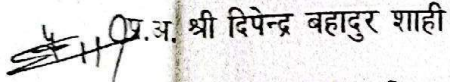 प्र.अ. श्री दिपेन्द्र बहादुर शाही